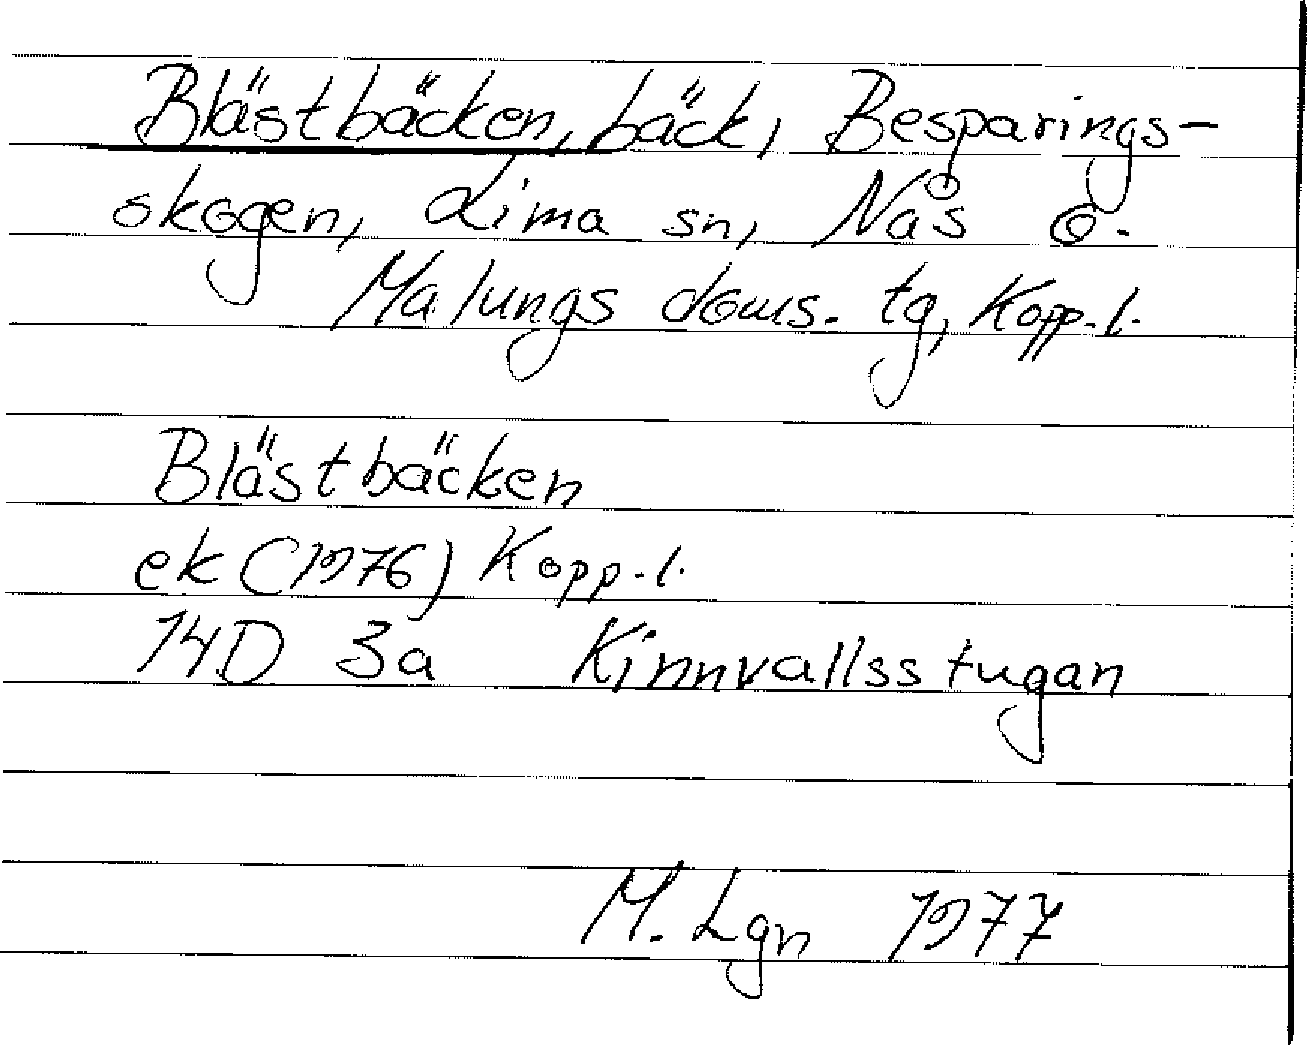 Blästbäcken, bäck, Besparings-
skogen, Lima sn, Nås o.
Malungs doms. tg, Kopp. l.
Blästbäcken
ek (1976) Kopp. l.
14D 3a Kinnvallsstugan
M. Lgn 1977